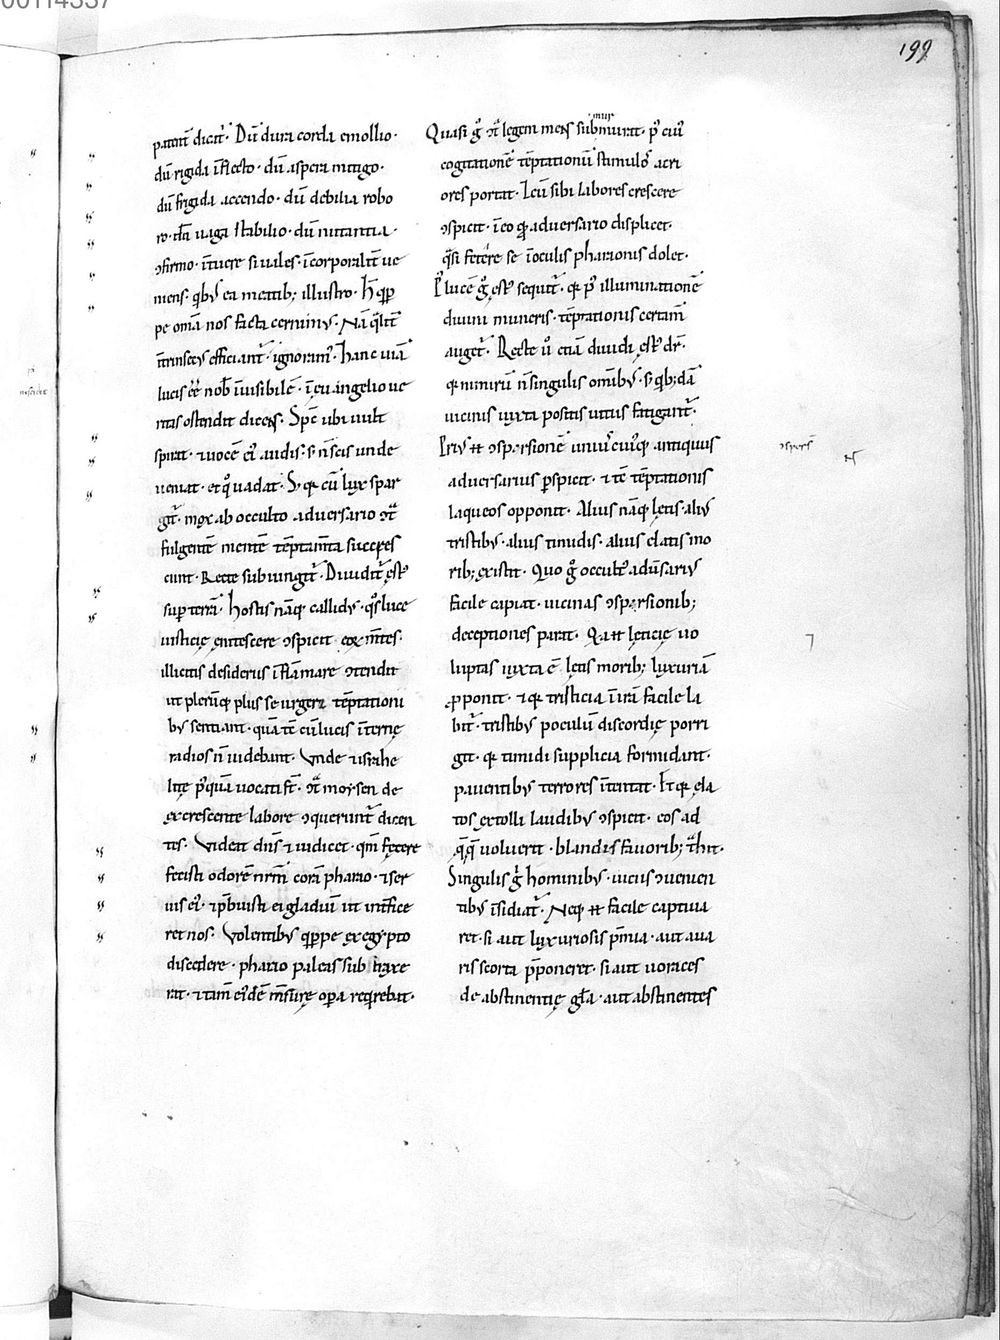 199
patent̄ dicit̄· Dū dura corda emollio·
dū rigida īflecto· dū aspera mitigo·
dū frigida accendo· dū debilia robo
ro· dū vaga stabilio· dū nutantia·
ɔfirmo· ītuere si vales· īcorporalit̄ ue
niens· qͥbꝰ ea mentib; illustro· h̄ qꝑ
pe om̄a nos facta cernimꝰ· Nā qͣlit̄
īt̄nsecꝰ efficiant̄· ignoramꝰ· Hanc uiā
lucis eē̄ nob̄ īuisibilē· ī euangelio ue
ritas ostendit dicens· Sp̄c ubi uult
spirat· ⁊ uocē eiꝰ audis· s; n̄ scis unde
ueniat· et qͦ uadat· S; qꝛ cū lux spar
git̄· mox ab occulto aduersario ɔͭͣ
fulgentē mentē tēptam̄ta succres
cunt· Recte subiungit̄· Diuidit̄ ęstꝰ
suꝑ terrā· Hostis nāq; callidꝰ· qͦs luce
iusticię enitescere ɔspicit· eoꝝ m̄tes·
illicitis desideriis īflāmare ɔtendit
ut plerūq; plus se urgeri tēptationi
bꝰ sentiant· quā tē cū lucis īternę
radios n̄ uidebant· Unde ⁊ israhe
litę pꝰquā uocati st̄· ɔͭͣ moysen de
excrescente labore ɔquerunt̄ dicen
tes· Videat dn̄s ⁊ iudicet· qm̄ fetere
fecisti odorē nr̄m corā pharao· ⁊ ser
uis eiꝰ· ⁊ p̄buisti ei gladiū ut int̄fice
ret nos· Volentibꝰ qꝑpe ex egypto
discedere· pharao paleas sub traxe
rat· ⁊ tam̄ eiꝰdē m̄surę oꝑa reqͥrebat·
Quasi g̊ ɔͭͣ legem mens submurat· pꝰ cuiꝰ
mur
cogitationē tēptationū stimulos acri
ores portat· ⁊ cū sibi labores crescere
ɔspicit· ī eo qꝙ aduersario displicet·
qͣsi fetere se ī oculis pharaonis dolet·
Pꝰ lucē g̊ ęstꝰ sequit̄· qꝛ pꝰ illuminationē
diuini muneris· tēptationis certam̄
auget̄· Recte ů etiā diuidi ęstꝰ dr̄·
qꝛ nimirū n̄ singulis om̄ibꝰ· s; qͥb;dā
uicinis iuxta positis uitiis fatigant̄·
Priꝰ ⁊ ɔsꝑsionē uniuscuiꝰq; antiquus
aduersarius ꝑspicit· ⁊ tē tēptationis
laqueos opponit· Alius nāq; lętis· aliꝰ
tristibꝰ· alius timidis· alius elatis mo
rib; existit· Quo g̊ occultꝰ adūsariꝰ
facile capiat· uicinas ɔsꝑsionib;
deceptiones parat· Q̄a lęticię uo
luptas iuxta ē· lętis morib; luxuriā
ꝓponit· ⁊ qꝛ tristicia ī irā facile la
bit̄· tristibꝰ poculū discordię porri
git· qꝛ timidi supplicia formidant·
pauentibꝰ terrores ītentat· Et qꝛ ęla
tos extolli laudibꝰ ɔspicit· eos ad
q̄q̄ uoluerit· blandis fauorib; tͣhit·
Singulis g̊ hominibꝰ· uiciis ɔuenien
tibꝰ īsidiat̄· Neq; facile captiua
ret· si aut luxuriosis p̄mia· aut aua
ris scorta p̄poneret· si aut uoraces
de abstinentię gl̄a· aut abstinentes